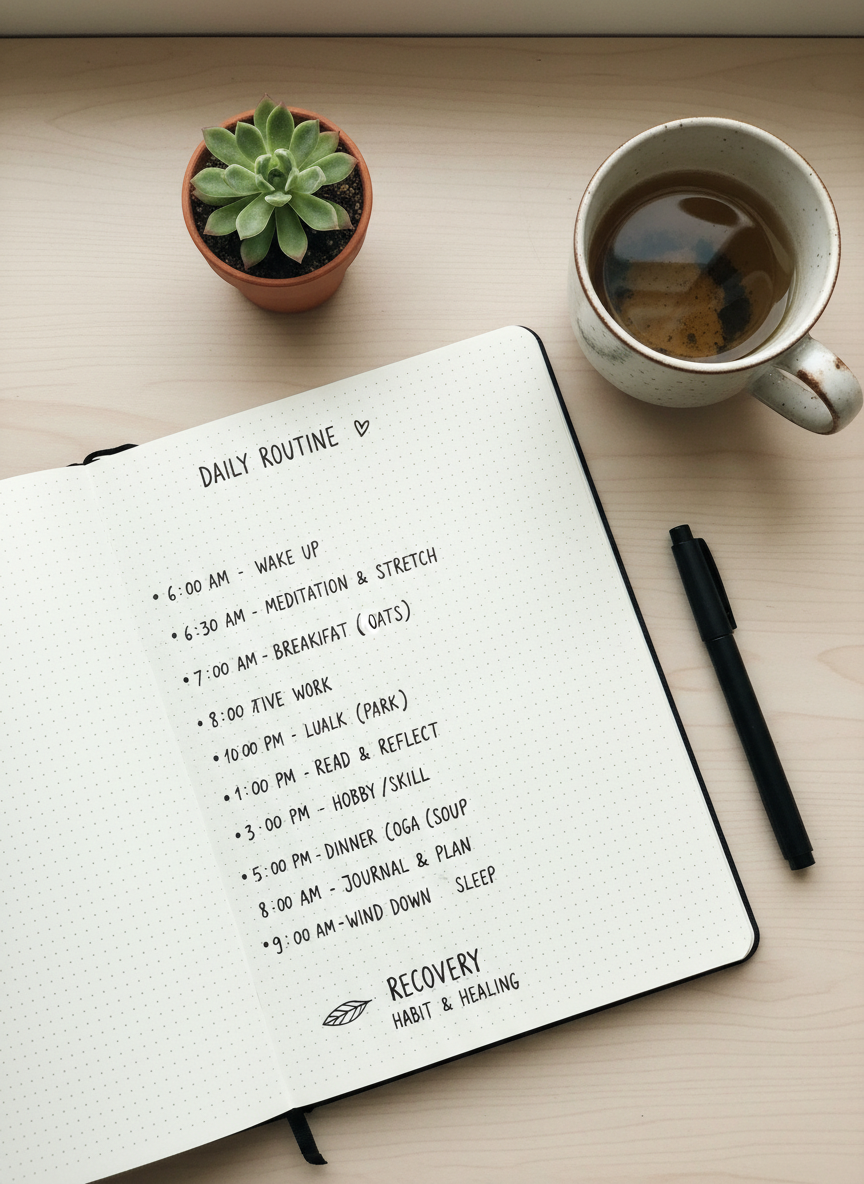 DAILY ROUTINE ♡
• 6:00 AM - WAKE UP
• 6:30 AM - MEDITATION & STRETCH
• 7:00 AM - BREAKIFAT (OATS)
• 8:00 TIVE WORK
• 10:00 PM - LUALK (PARK)
• 1:00 PM - READ & REFLECT
• 3:00 PM - HOBBY/SKILL
• 5:00 PM - DINNER (OGA (SOUP
8:00 AM - JOURNAL & PLAN
• 9:00 AM - WIND DOWN SLEEP
RECOVERY
HABIT & HEALING